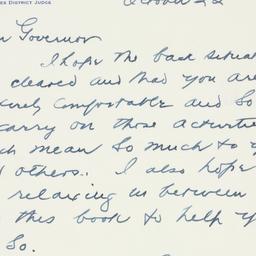 ES DISTRICT JUDGE
October 22
n Governor
I hope the back situat
cleared and that you are
erely comfortable and so
carry on those activitie
ch mean so much to y
d others. I also hope
relaxing in between
this book to help y
so.